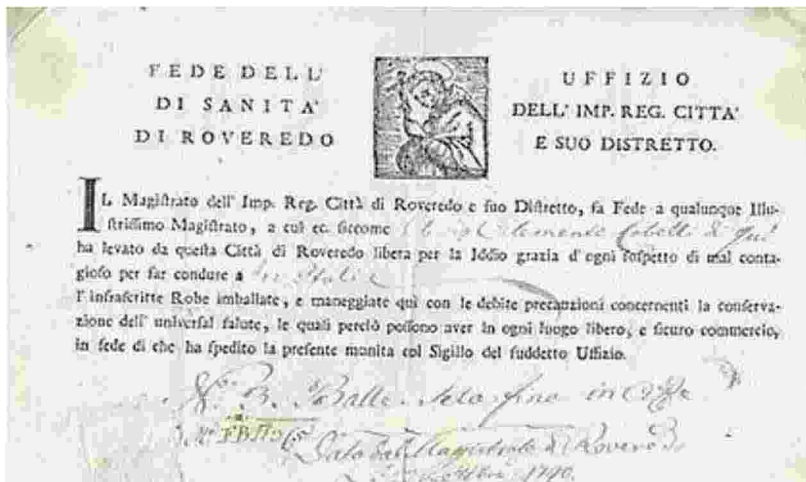 FEDE DELL'
DI SANITA'
DI ROVEREDO
UFFIZIO
DELL' IMP. REG. CITTA'
E SUO DISTRETTO.
IL Magiſtrato dell' Imp. Reg. Città di Roveredo e ſuo Diſtretto, fa Fede a qualunque Illu-
ſtriſſimo Magiſtrato, a cui ec. ſiccome Clemente di qui
ha levato da queſta Città di Roveredo libera per la Iddio grazia d' ogni ſoſpetto di mal conta-
gioſo per far condure a in Italia
l' infraſcritte Robe imballate, e maneggiate qui con le debite precauzioni concernenti la conſerva-
zione dell' univerſal ſalute, le quali perciò poſſono aver in ogni luogo libero, e ſicuro commercio,
in fede di che ha ſpedito la preſente munita col Sigillo del ſuddetto Uffizio.
Balle Seta fina in
Dato dal Magistrato di Roveredo
1790.